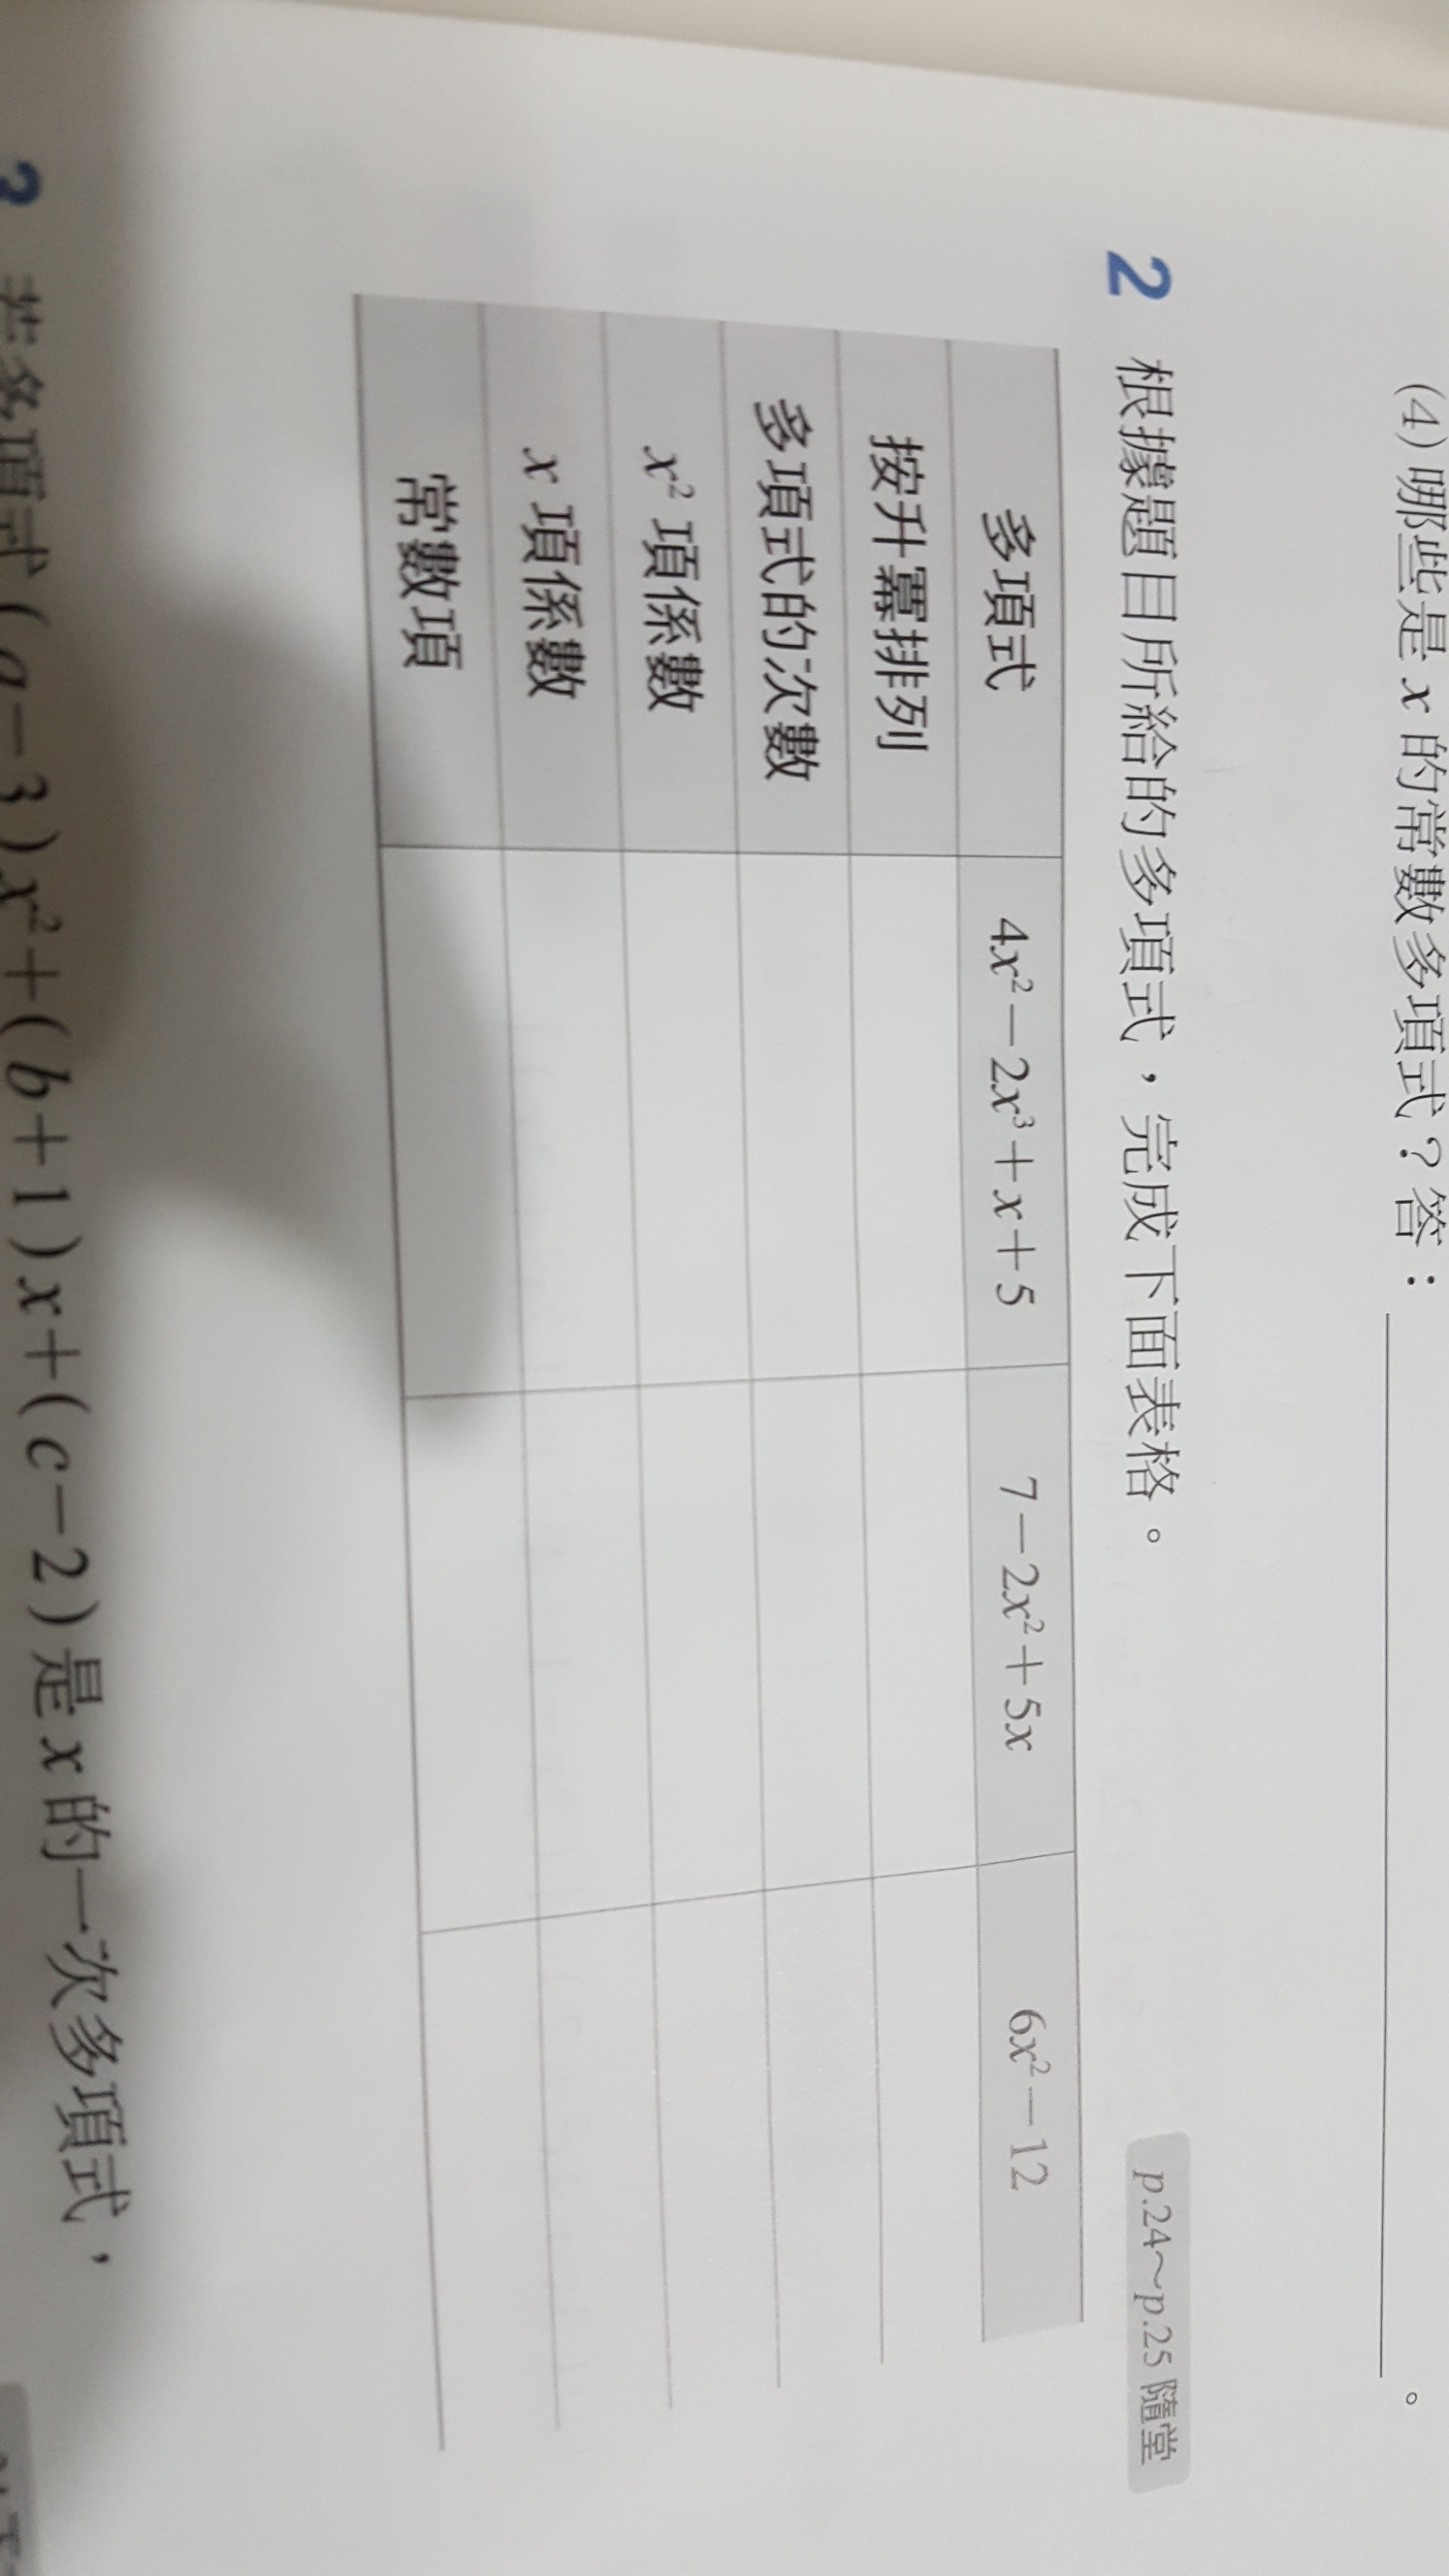 (4) 哪些是 x 的常數多項式？答：＿＿＿＿＿＿＿＿。
2 根據題目所給的多項式，完成下面表格。 p.24～p.25 隨堂
多項式 4x²－2x³＋x＋5 7－2x²＋5x 6x²－12
按升冪排列
多項式的次數
x² 項係數
x 項係數
常數項
若多項式 (a－3)x²＋(b＋1)x＋(c－2) 是 x 的一次多項式，